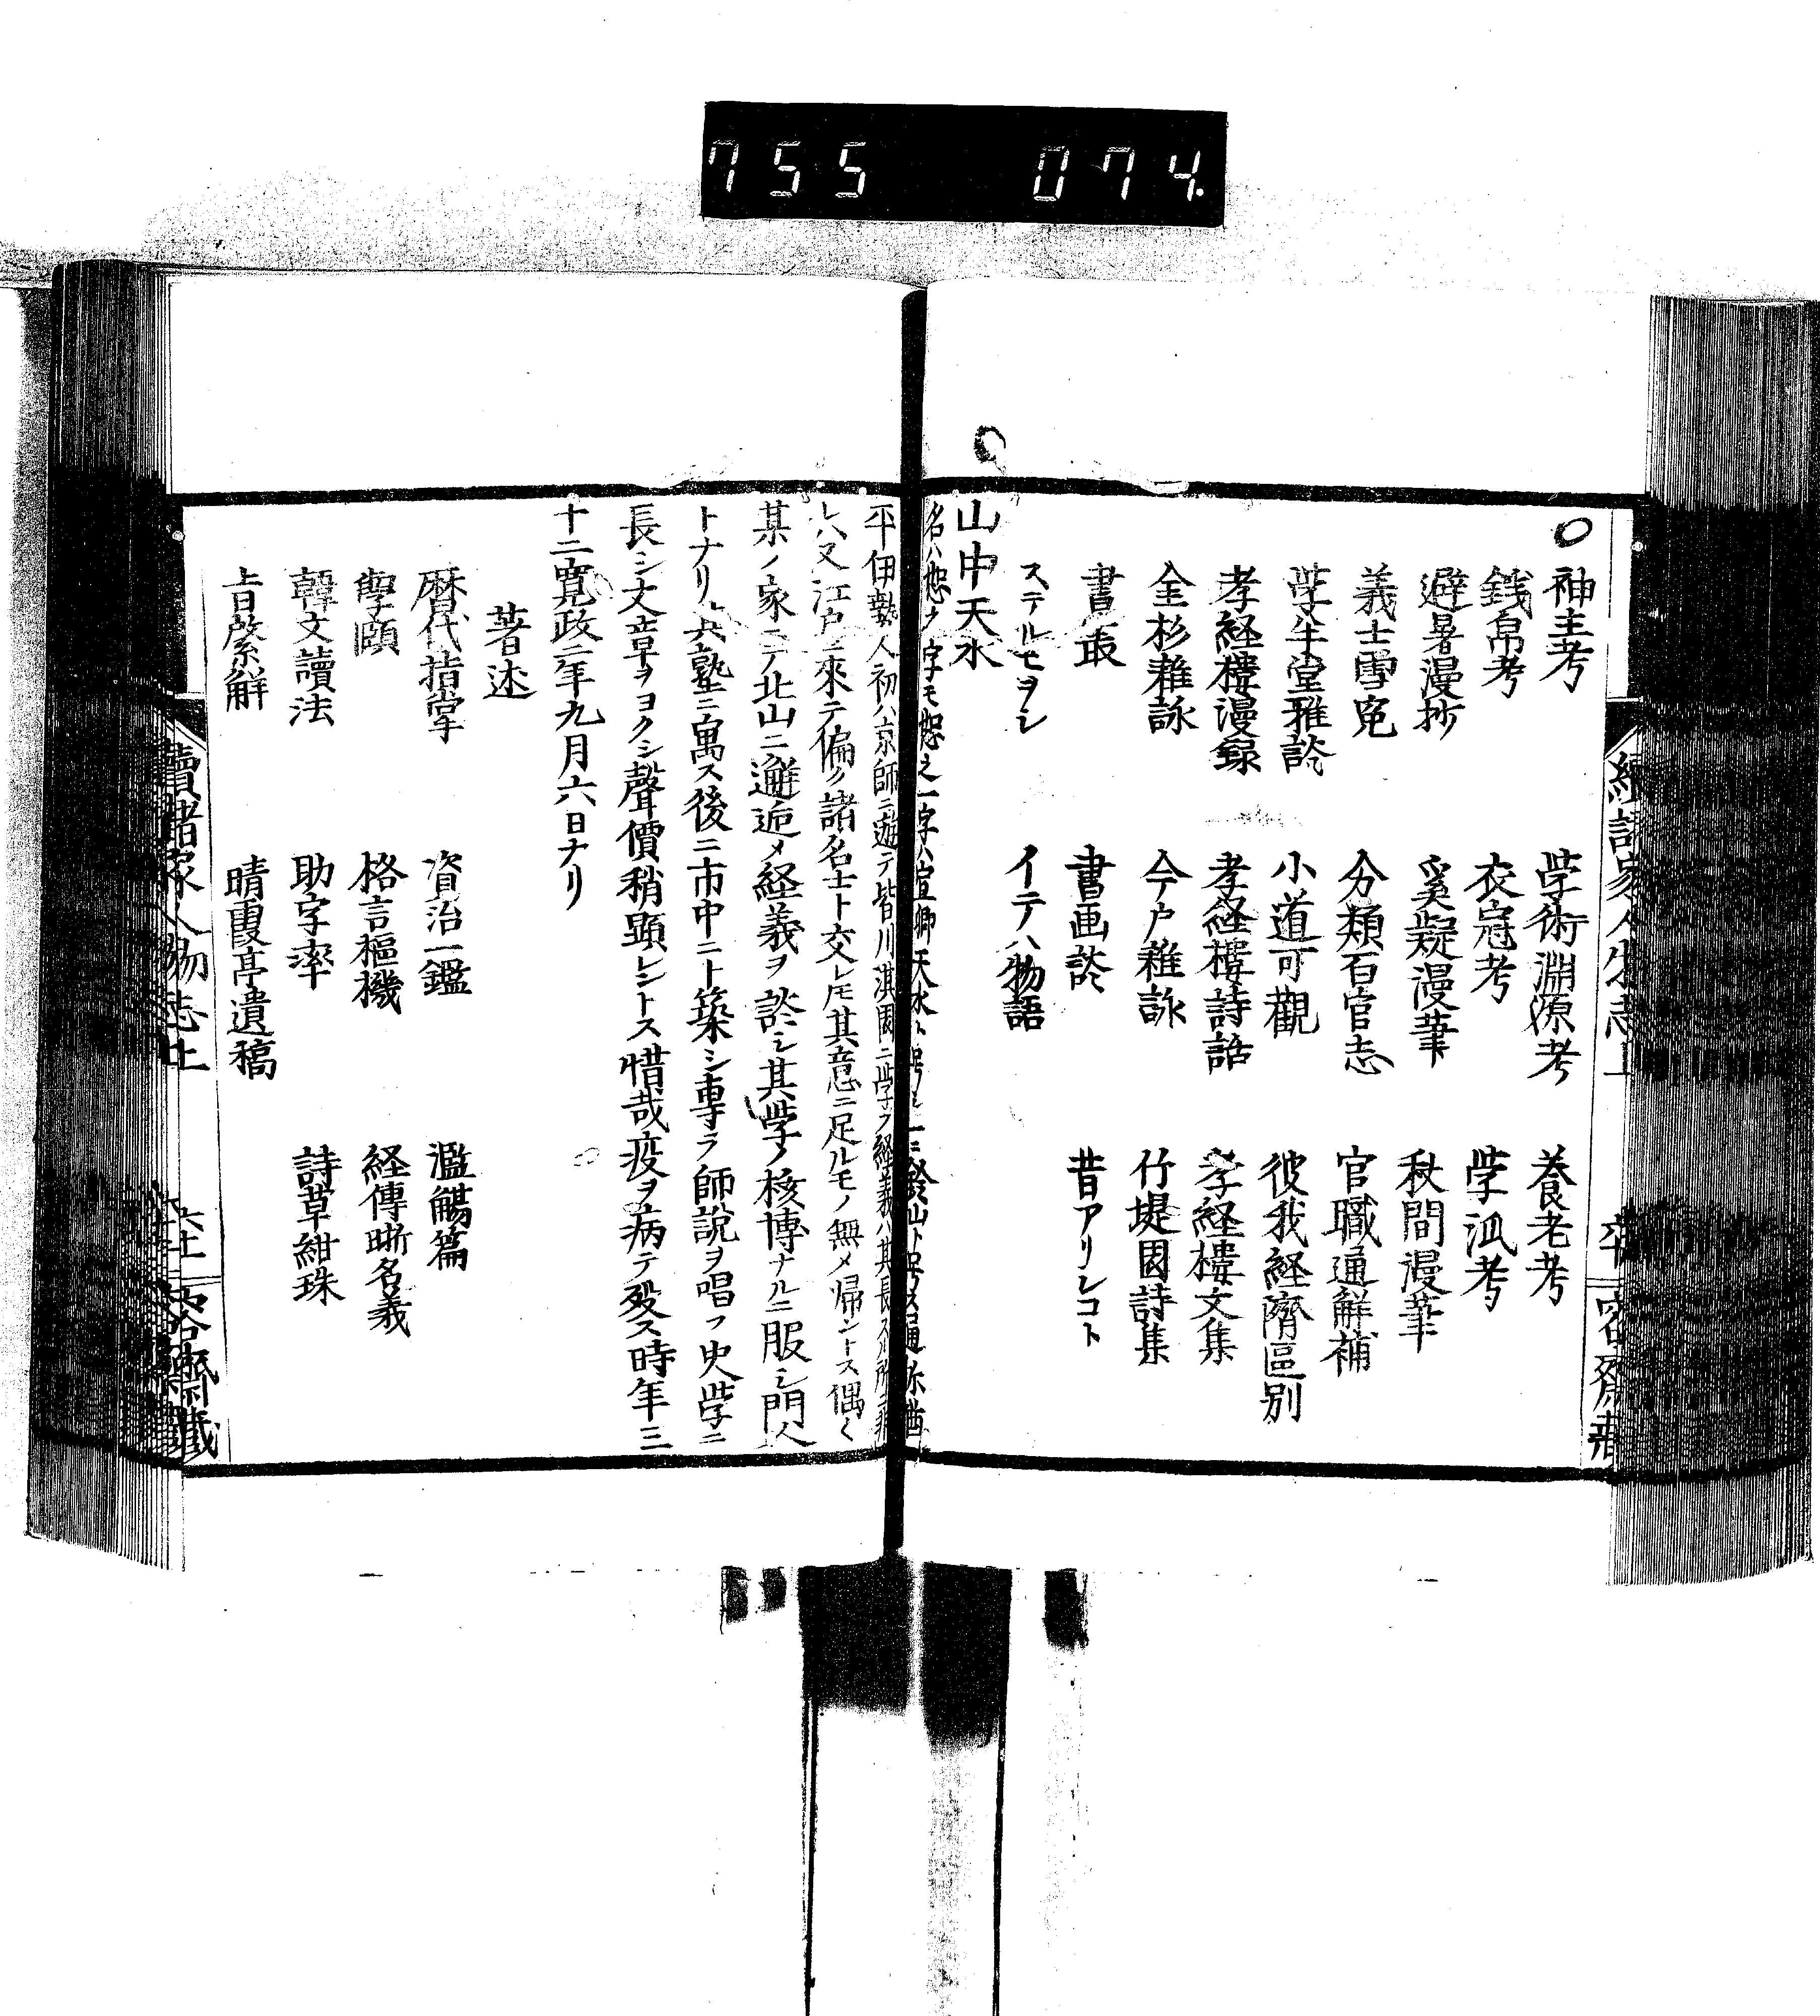 755 074
神主考 学術淵源考 養老考
銭帛考 衣冠考 学派考
避暑漫抄 奚疑漫筆 秋間漫筆
義士雪冤 分類百官志 官職通解補
学半堂雅談 小道可觀 彼我経済區別
孝経樓漫録 孝経樓詩話 孝経樓文集
金杉雜詠 今戸雜詠 竹堤園詩集
書叢 書画談 昔アリシコト
ステルモヲシ イテハ物語
山中天水
名ハ恕 字モ恕之一字ハ宣卿天水ト号シ
平伊勢人初ハ京師ニ遊テ皆川淇園ニ学フ経義ハ其長スル所
レハ又江戸ニ來テ偏ク諸名士ト交レ𪜈其意ニ足ルモノ無メ帰ントス偶く
某ノ家ニテ北山ニ邂逅メ経義ヲ談シ其学ノ核博ナルニ服シ門人
トナリ塾ニ寓ス後ニ市中ニト築シ専ラ師説ヲ唱フ史学ニ
長シ文章ヲヨクシ聲價稍顕レントス惜哉疫ヲ病テ歿ス時年三
十二寛政二年九月六日ナリ
著述
暦代指掌 資治一鑑 濫觴篇
學頤 格言樞機 経傳晣名義
韓文讀法 助字率 詩草紺珠
肯綮觧 晴霞亭遺稿
續諸家人物志上